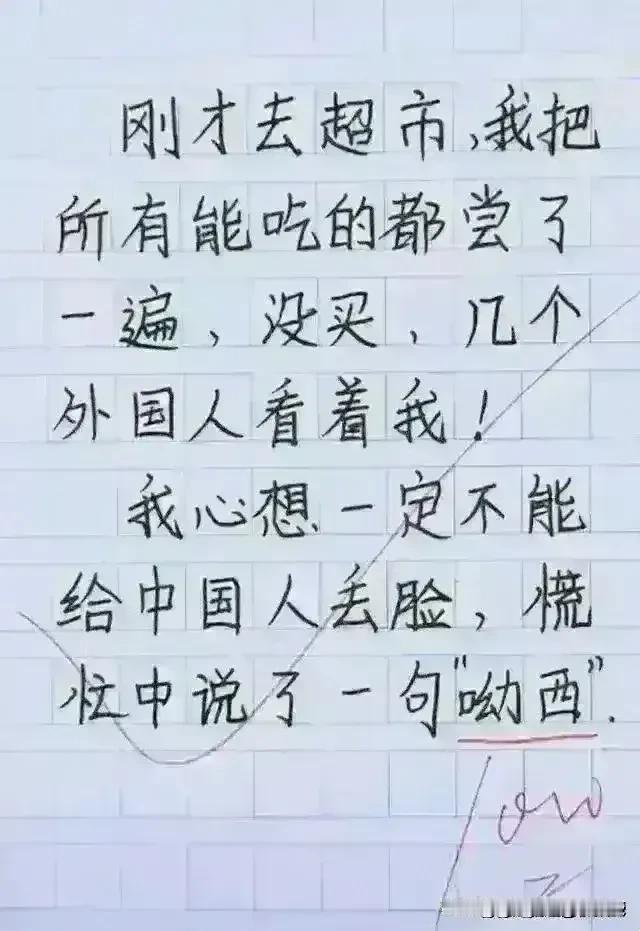 刚才去超市,我把
所有能吃的都尝了
一遍,没买,几个
外国人看着我!
我心想一定不能
给中国人丢脸,慌
忙中说了一句"呦西".